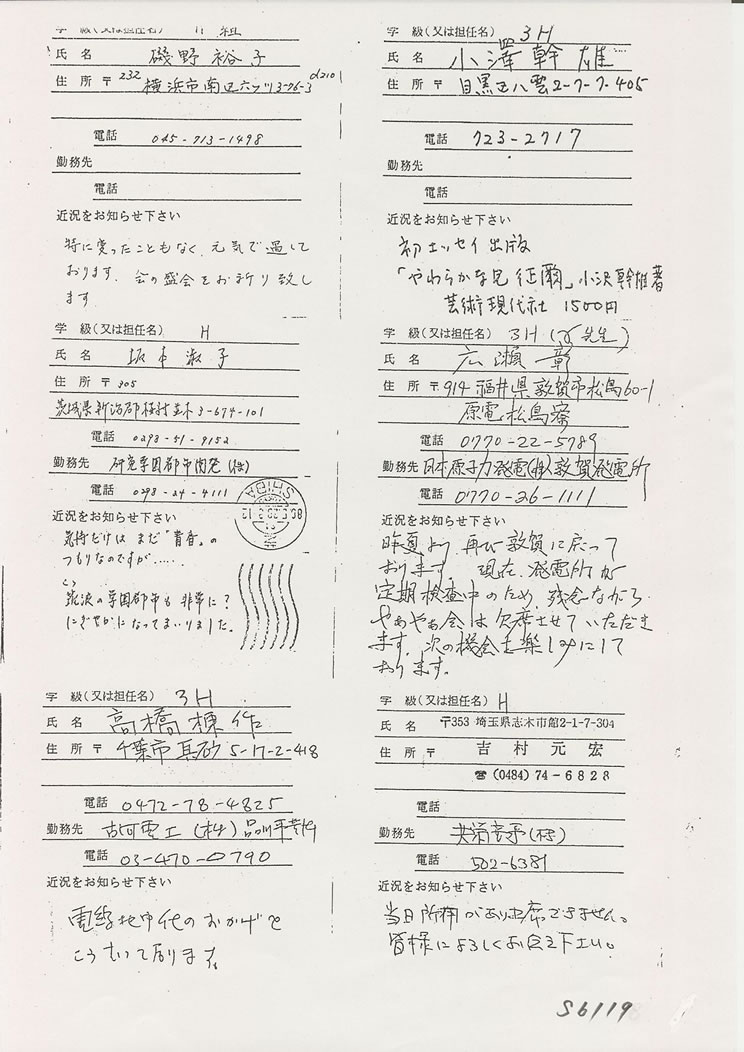 学 級(又は担任名) H 組
氏 名 磯野 裕子
住 所 〒232 横浜市南区六ツ川3-76-3 d210
電話 045-713-1498
勤務先
電話
近況をお知らせ下さい
特に変ったこともなく、元気で過して
おります. 会の盛会をお祈り致し
ます.
学 級(又は担任名) H
氏 名 坂本 淑子
住 所 〒305
茨城県新治郡桜村並木3-674-101
電話 0298-51-9152
勤務先 研究学園都市開発(株)
電話 0298-24-4111
近況をお知らせ下さい
気持だけは まだ"青春"の
つもりなのですが.....
筑波の学園都市も 非常に?
にぎやかになってまいりました.
学 級(又は担任名) 3H
氏 名 高橋 棟作
住 所 〒 千葉市真砂5-17-2-418
電話 0472-78-4825
勤務先 古河電工(株)
電話 03-470-0790
近況をお知らせ下さい
電線地中化のおかげで
学 級(又は担任名) 3H
氏 名 小澤 幹雄
住 所 〒 目黒区八雲2-7-7-405
電話 723-2717
勤務先
電話
近況をお知らせ下さい
初エッセイ出版
「やわらかな兄 征爾」小沢幹雄著
芸術現代社 1500円
学 級(又は担任名) 3H( 先生)
氏 名 広瀬 彰
住 所 〒914 福井県敦賀市松島60-1
原電松島寮
電話 0770-22-5789
勤務先 日本原子力発電(株)敦賀発電所
電話 0770-26-1111
近況をお知らせ下さい
昨夏より、再び敦賀に戻って
おります. 現在、発電所が
定期検査中のため、残念ながら
やぁやぁ会は欠席させていただき
ます. 次の機会を楽しみにして
おります.
学 級(又は担任名) H
氏 名 〒353 埼玉県志木市館2-1-7-304
住 所 〒 吉村元宏
☎(0484)74-6828
電話
勤務先
電話 502-6381
近況をお知らせ下さい
当日所用があり出席できません。
皆様によろしくお伝え下さい。
S6119